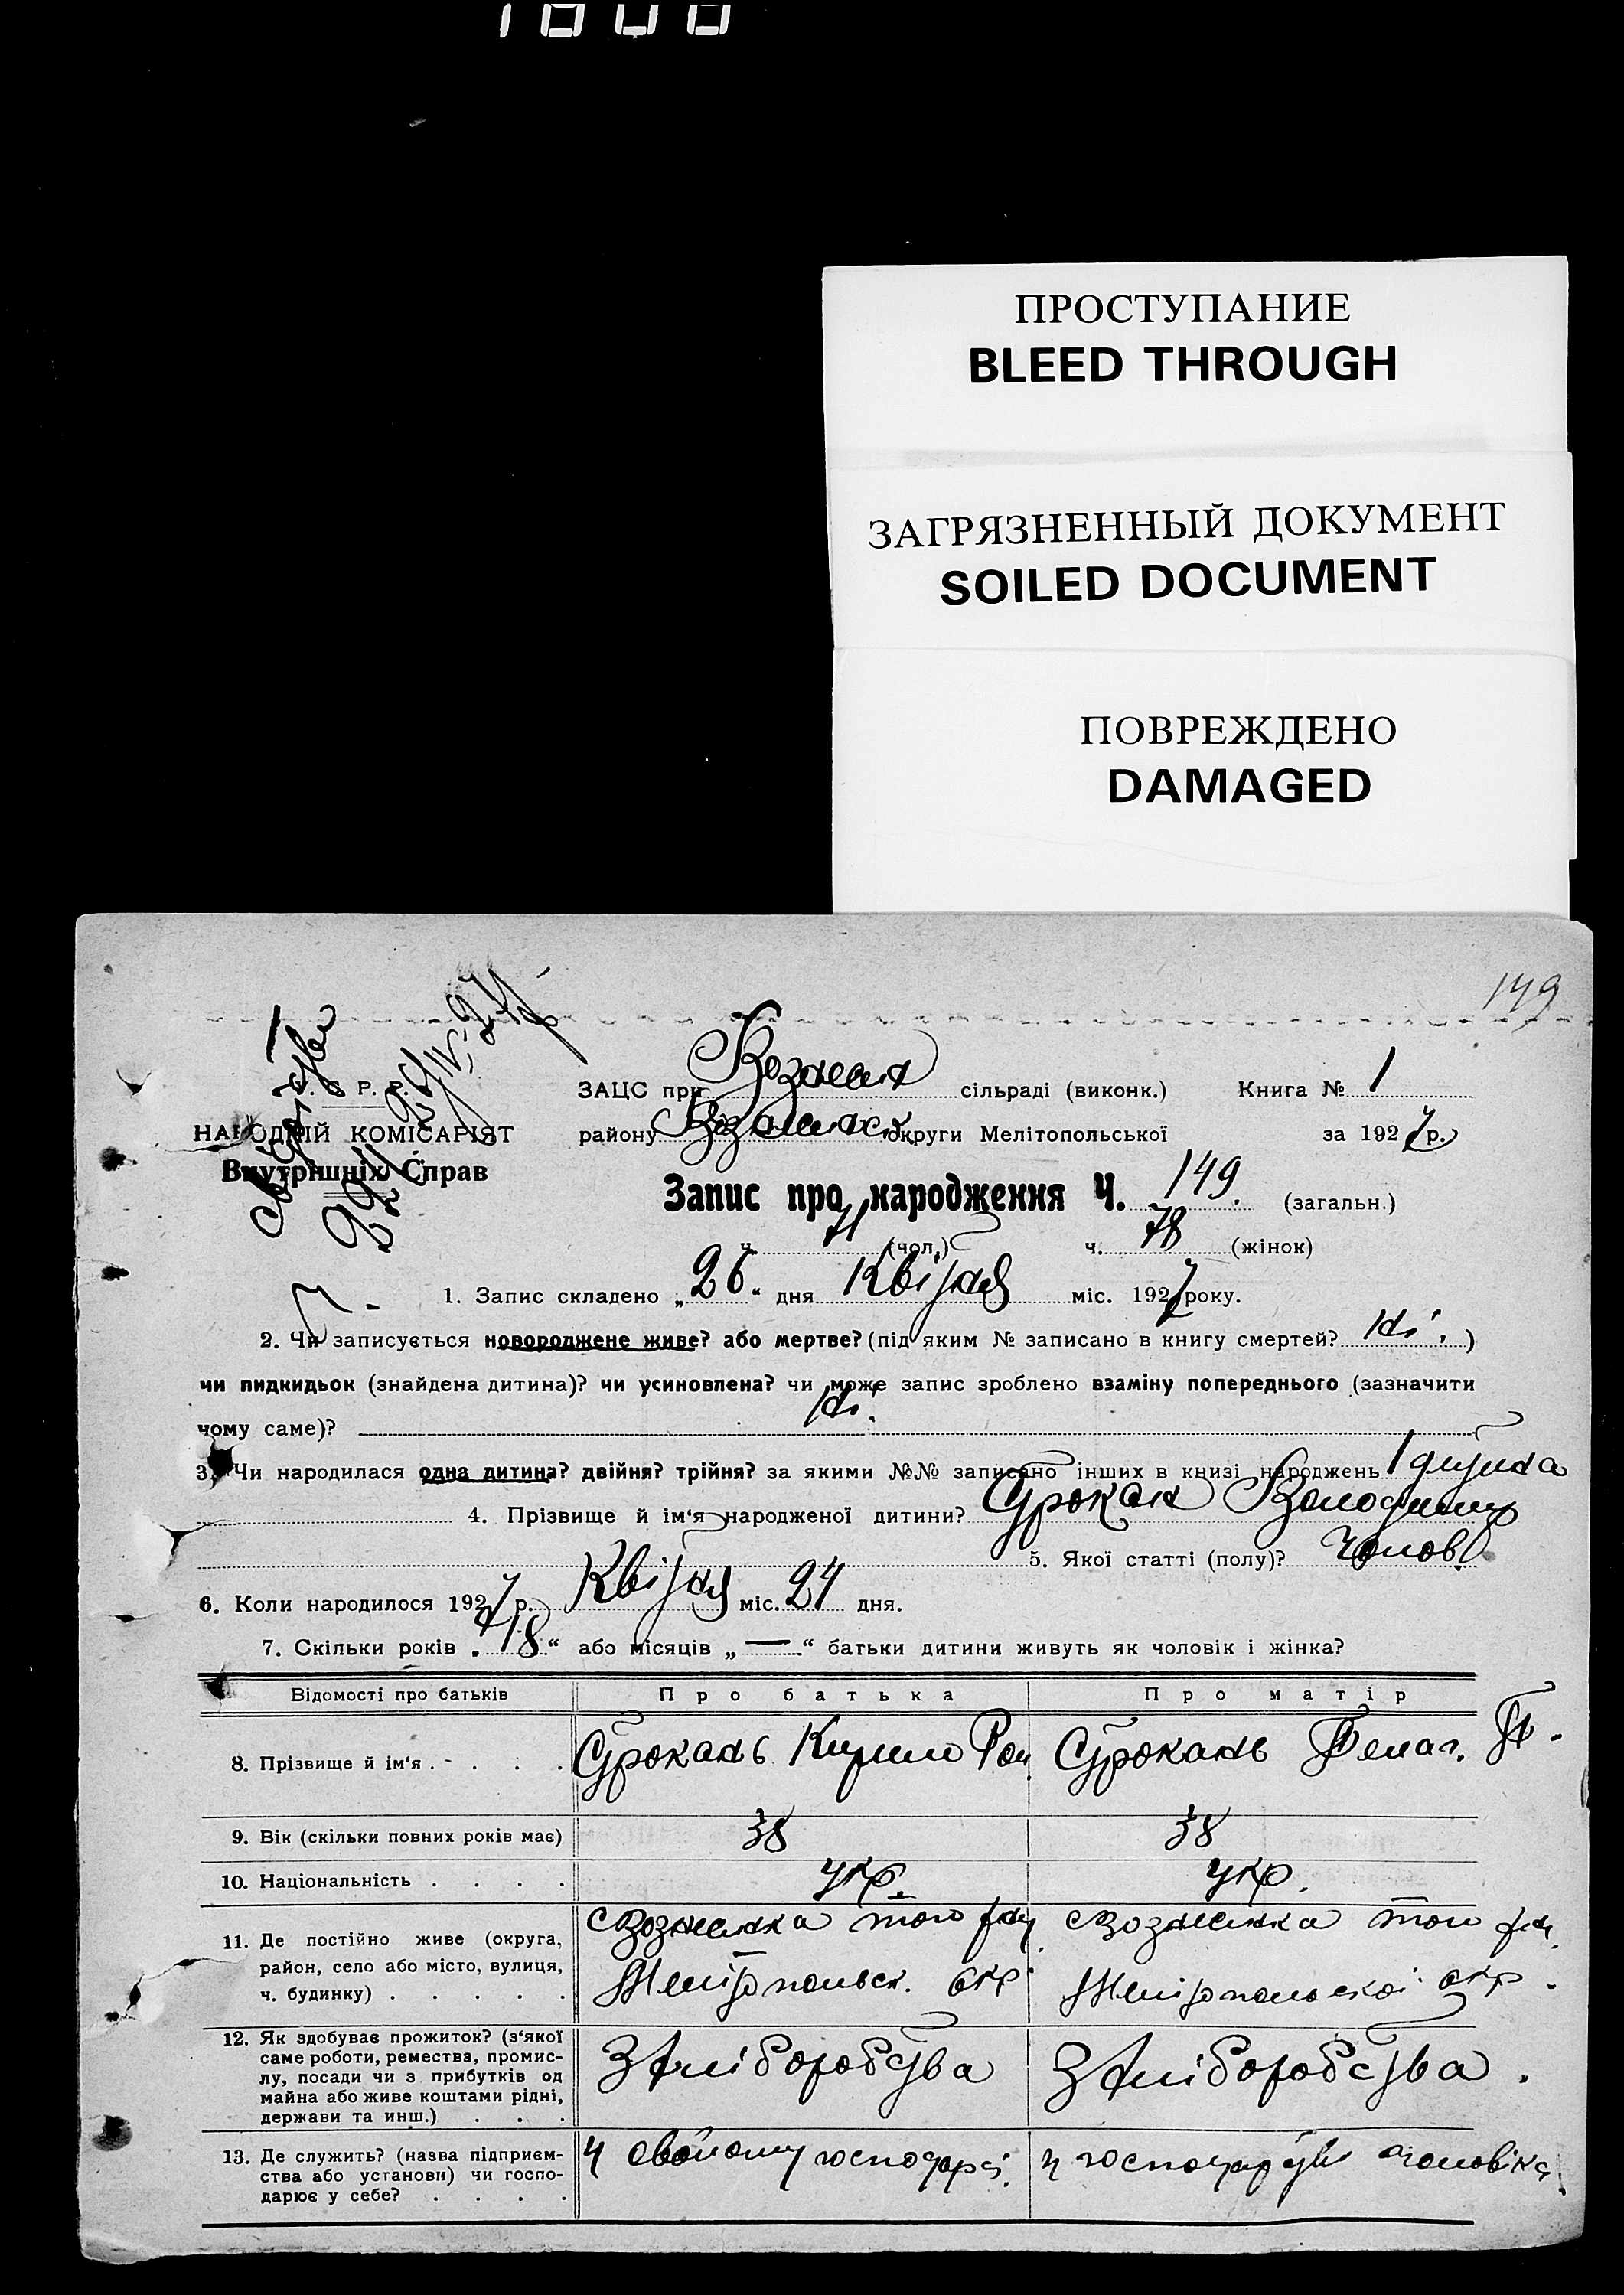 ПРОСТУПАНИЕ
BLEED THROUGH
ЗАГРЯЗНЕННЫЙ ДОКУМЕНТ
SOILED DOCUMENT
ПОВРЕЖДЕНО
DAMAGED
149
Р. Р.
НАРОДНІЙ КОМІСАРІЯТ
Внутрішніх Справ
ЗАЦС при сільраді (виконк.) Книга № 1
району округи Мелітопольської за 1927 р.
Запис про народження Ч. 149. (загальн.)
ч. 71 (чол.) ч. 78 (жінок)
1. Запис складено „26“ дня Квітня міс. 1927 року.
2. Чи записується новороджене живе? або мертве? (під яким № записано в книгу смертей? Ні.)
чи пидкидьок (знайдена дитина)? чи усиновлена? чи може запис зроблено взаміну попереднього (зазначити
чому саме)? Ні.
3. Чи народилася одна дитина? двійня? трійня? за якими №№ записано інших в книзі народжень 1 дитина
4. Прізвище й ім‘я народженої дитини? Строкань Володимир
5. Якої статті (полу)? Чолов.
6. Коли народилося 1927 р. Квітня міс. 24 дня.
7. Скільки років „18“ або місяців „—“ батьки дитини живуть як чоловік і жінка?
Відомості про батьків Про батька Про матір
8. Прізвище й ім‘я . . . . Строкань Кирило Ром. Строкань Пелаг.
9. Вік (скільки повних років має) 38 38
10. Національність . . . . Укр. Укр.
11. Де постійно живе (округа,
район, село або місто, вулиця,
ч. будинку) . . . . .
с Вознесенка того рай.
Мелітопольск. окр.
с Вознесенка того рай.
Мелітопольскоі окр.
12. Як здобуває прожиток? (з‘якої
саме роботи, ремества, промис-
лу, посади чи з прибутків од
майна або живе коштами рідні,
держави та инш.) . . .
З хліборобства З хліборобства.
13. Де служить? (назва підприєм-
ства або установи) чи госпо-
дарює у себе? . . . .
У свойому господарс. У господарстві чоловіка.